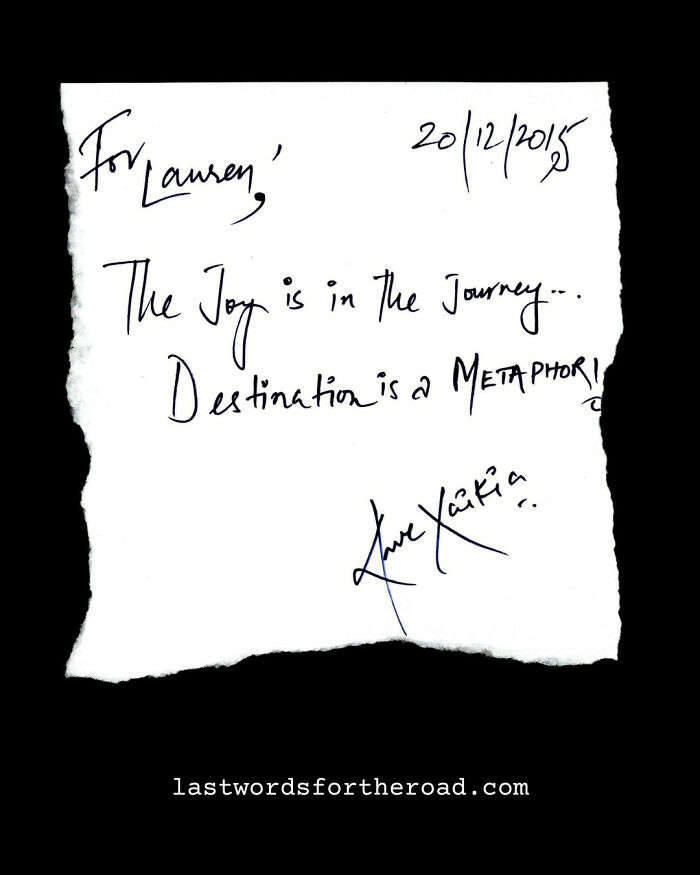 For Lauren,
20/12/2015
The Joy is in the Journey...
Destination is a METAPHOR!
Xaikia
lastwordsfortheroad.com